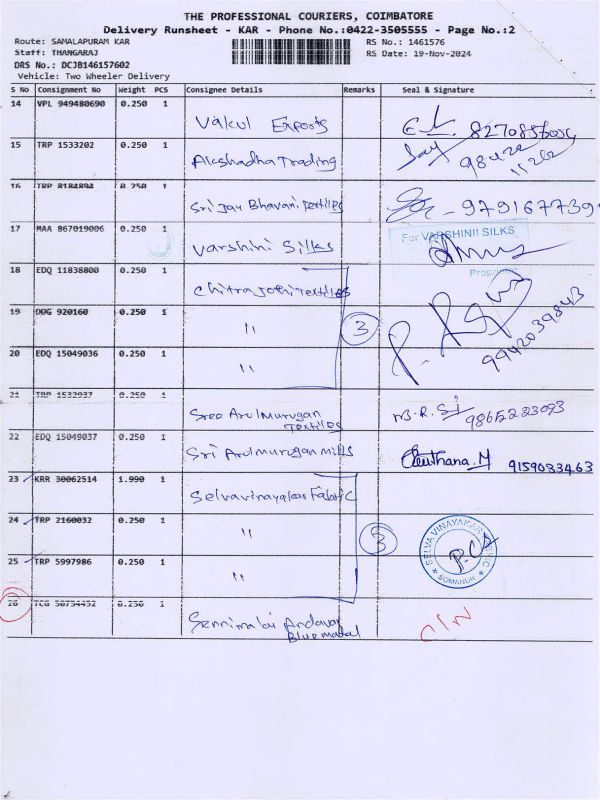 THE PROFESSIONAL COURIERS, COIMBATORE
Delivery Runsheet - KAR - Phone No.:0422-3505555 - Page No.:2
Route: SAMALAPURAM KAR
Staff: THANGARAJ
DRS No.: DCJB146157602
Vehicle: Two Wheeler Delivery
RS No.: 1461576
RS Date: 19-Nov-2024
S No Consignment No Weight PCS Consignee Details Remarks Seal & Signature
14 VPL 949480690 0.250 1
Vakul Exports
15 TRP 1533202 0.250 1
Akshadha Trading 98422 11262
16 TRP 8184894 0.250 1
Sri Jay Bhavani Textiles 979167739
17 MAA 867019006 0.250 1
Varshini Silks
For VARSHINII SILKS
Proprietor
18 EDQ 11838800 0.250 1
Chitrajothi Textiles
19 DDG 920160 0.250 1
"
3
9942039843
20 EDQ 15049036 0.250 1
"
21 TRP 1532937 0.250 1
Sree Arulmurugan Textiles
22 EDQ 15049037 0.250 1
Sri Arulmurugan Mills 9159033463
23 KRR 30062514 1.990 1
Selvavinayakar Fabric
24 TRP 2160032 0.250 1
"
3
SELVA VINAYAKAR FABRIC
SOMANUR
25 TRP 5997986 0.250 1
"
26 0.250 1
Sennimalai Andavar
Bluemetal